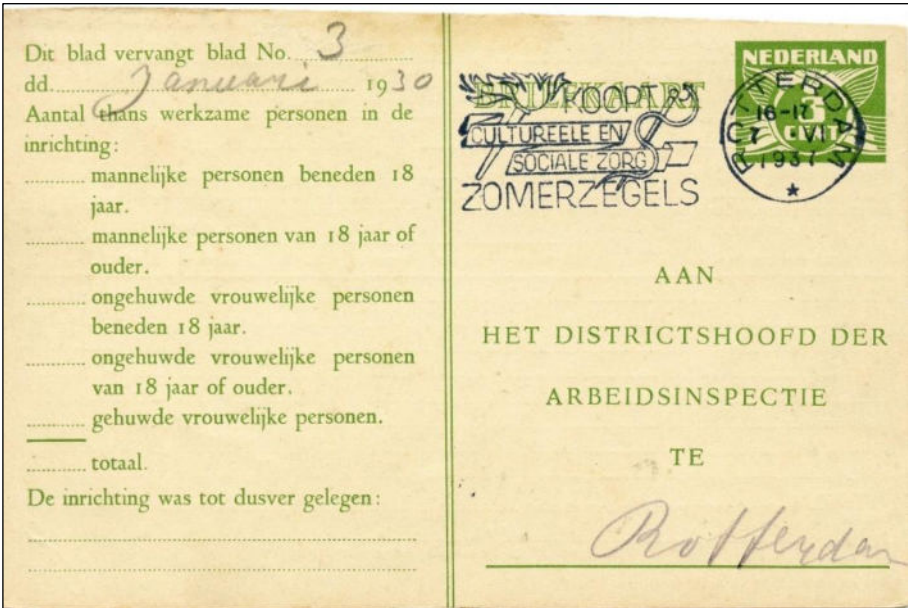 Dit blad vervangt blad No. 3
dd. Januari 1930
Aantal thans werkzame personen in de
inrichting:
mannelijke personen beneden 18
jaar.
mannelijke personen van 18 jaar of
ouder.
ongehuwde vrouwelijke personen
beneden 18 jaar.
ongehuwde vrouwelijke personen
van 18 jaar of ouder.
gehuwde vrouwelijke personen.
totaal.
De inrichting was tot dusver gelegen:
BRIEFKAART
KOOPT
CULTUREELE EN
SOCIALE ZORG
ZOMERZEGELS
NEDERLAND
3
CENT
ROTTERDAM
16-17
7 VI
1937
AAN
HET DISTRICTSHOOFD DER
ARBEIDSINSPECTIE
TE
Rotterdam